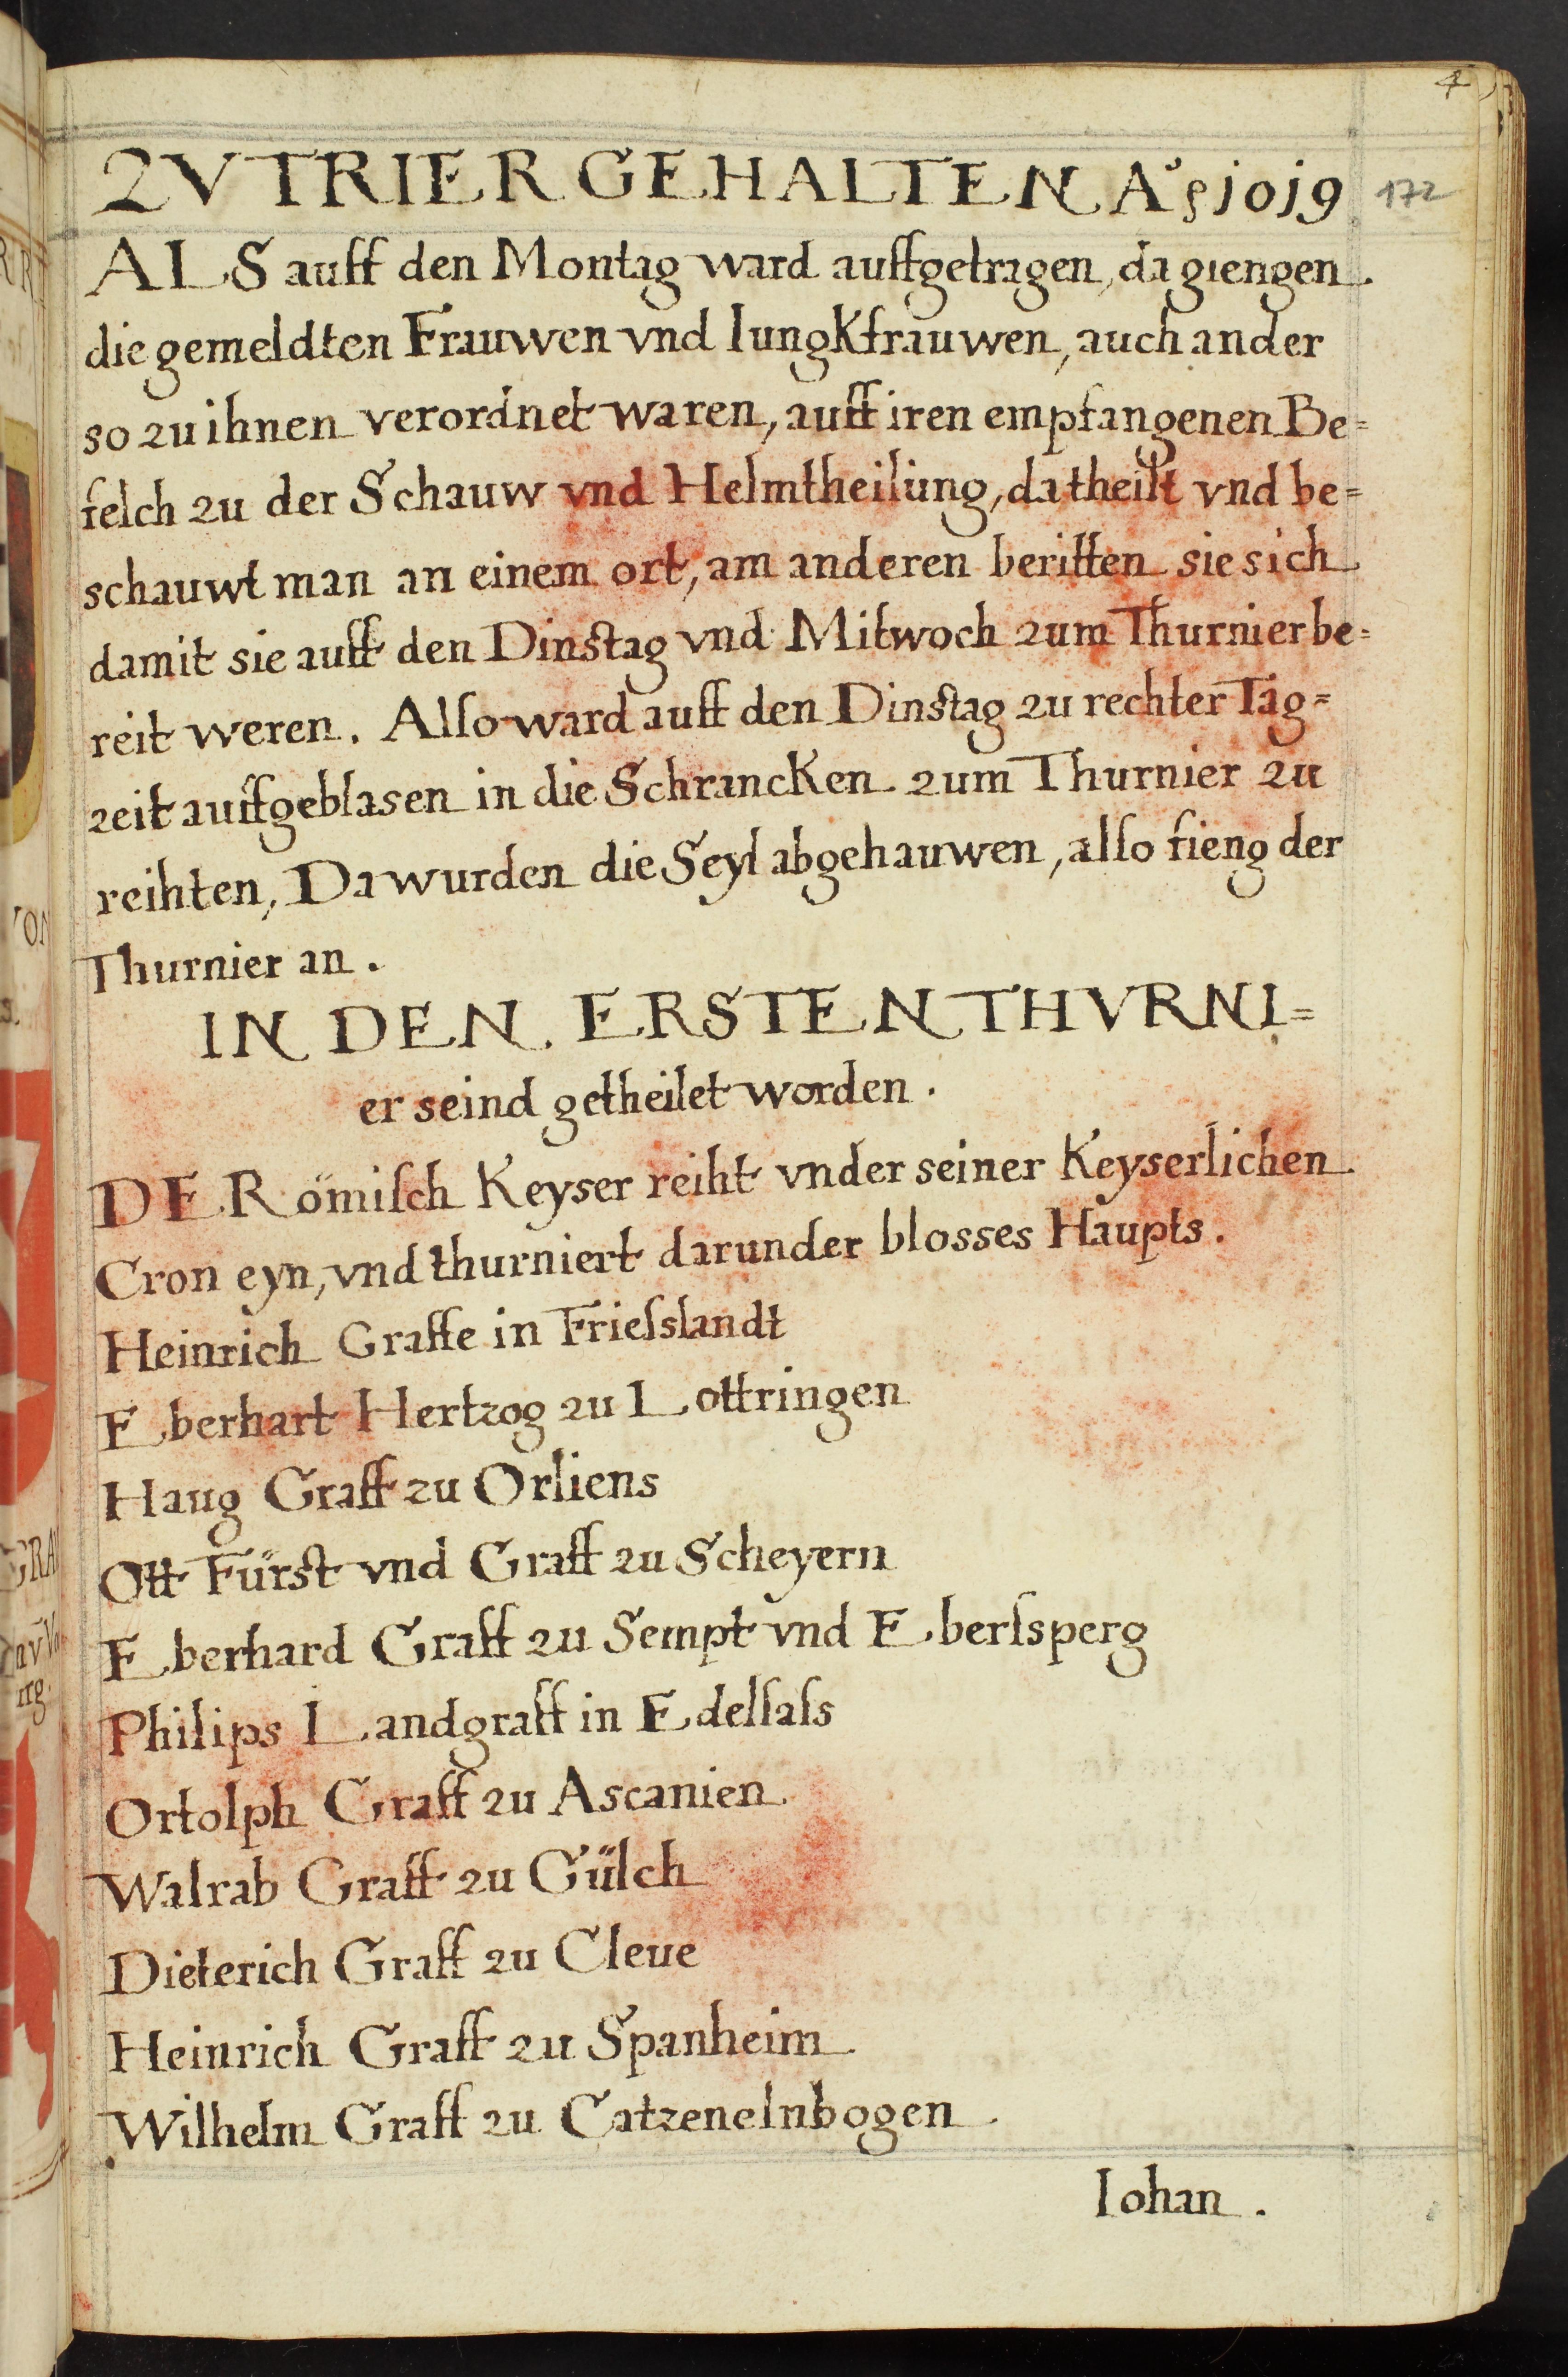 4
ZV TRIER GEHALTEN A° 1019
172
ALS auff den Montag ward auffgetragen, da giengen
die gemeldten Frauwen vnd Iungkfrauwen, auch ander
so zu ihnen verordnet waren, auff iren empfangenen Be=
felch zu der Schauw vnd Helmtheilung, da theilt vnd be=
schauwt man an einem ort, am anderen beritten sie sich
damit sie auff den Dinstag vnd Mitwoch zum Thurnier be=
reit weren. Alſo ward auff den Dinstag zu rechter Tag=
zeit auffgeblasen in die Schrancken zum Thurnier zu
reihten, Da wurden die Seyl abgehauwen, alſo fieng der
Thurnier an.
IN DEN ERSTEN THVRNI=
er seind getheilet worden.
DER ömiſch Keyser reiht vnder seiner Keyserlichen
Cron eyn, vnd thurniert darunder blosses Haupts.
Heinrich Graffe in Frieſslandt
Eberhart Hertzog zu Lottringen
Haug Graff zu Orliens
Ott Fürst vnd Graff zu Scheyern
Eberhard Graff zu Sempt vnd Eberſsperg
Philips Landgraff in Edelſaſs
Ortolph Graff zu Ascanien
Walrab Graff zu Gülch
Dieterich Graff zu Cleue
Heinrich Graff zu Spanheim
Wilhelm Graff zu Catzenelnbogen
Iohan.